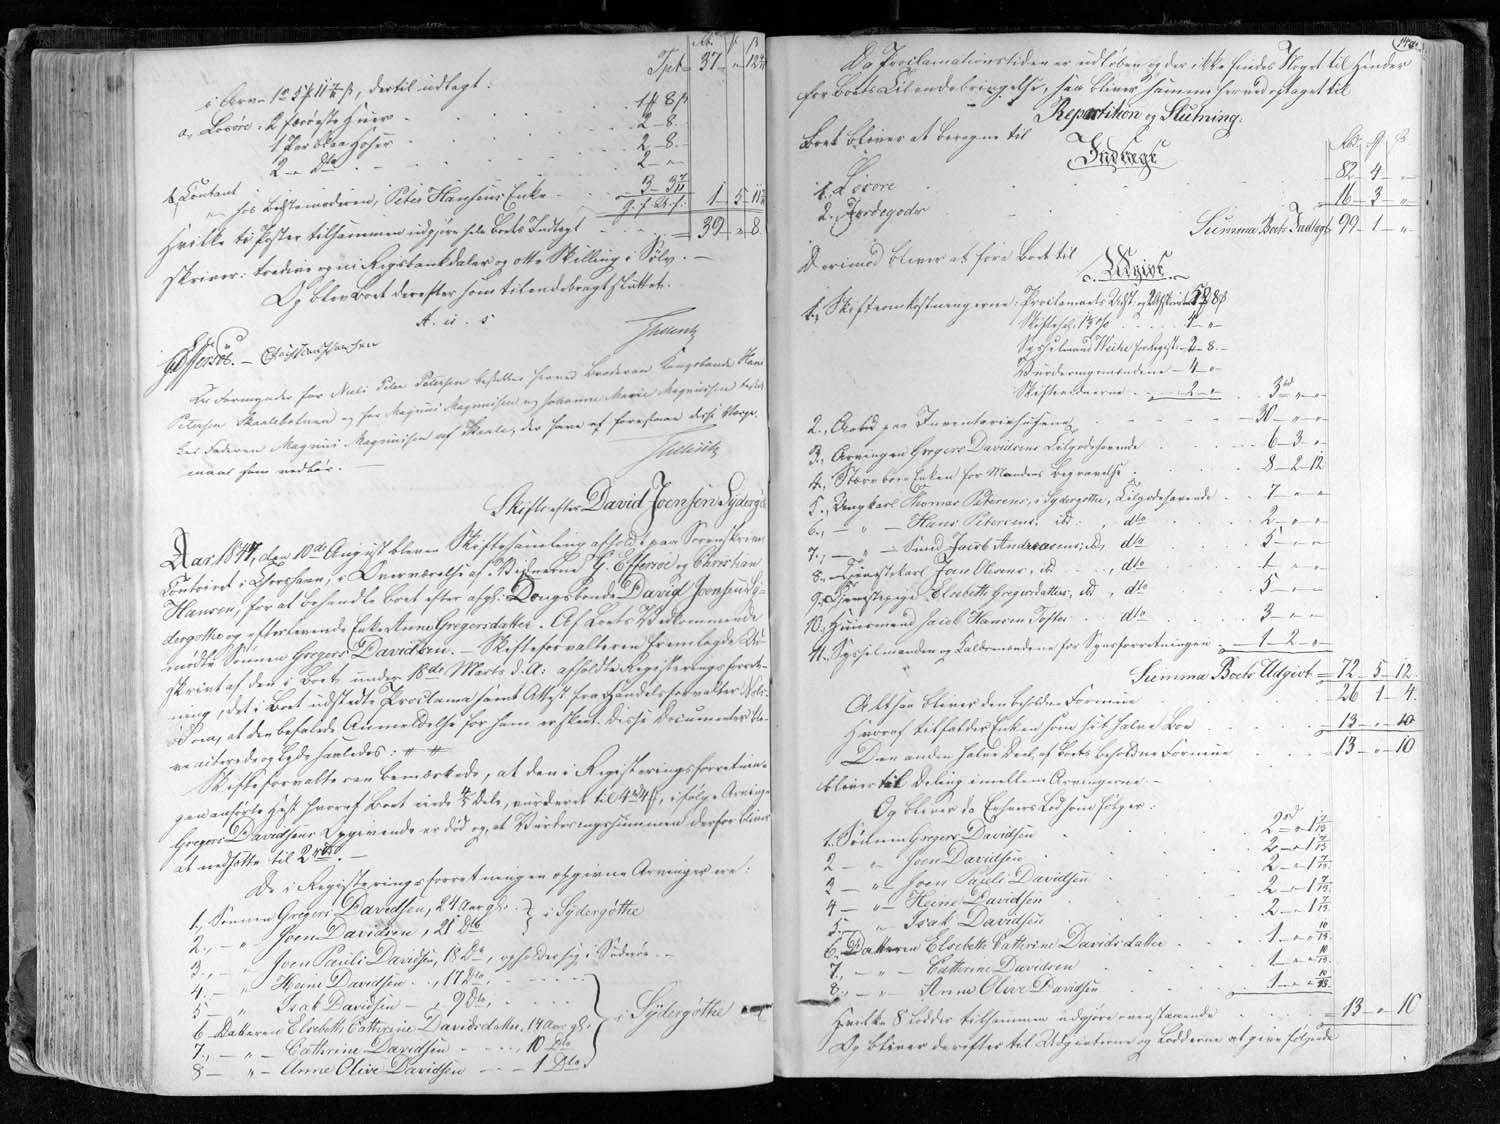 Tpt. 37 " 12
i Arv 1 rd 5 ƒ 11 ß, dertil udlagt:
a, Løsøre: 2 Færøeste Huer 1 ƒ 8 ß
1 Par Hoser 2 - 8 -
2 - Dto 2 - "
b, Contant 3 - 3
" hos Bestemoderen, Peter Hansens Enke 1 - 5 - 11
Hvilke ti Poster tilsammen udgjøre hele Boets Indtægt 39 - " 8
skriver: tredive og ni Rigsbankdaler og otte Skilling i Sølv. -
Og blev Boet derefter som tilendebragt sluttet.
A. u. s.
G. Effersöe. - Christian Hansen
Til Formynder for Niels Peter Petersen beskikkes herved Broderen Kongsbonde Hans
Petersen Skaalebotnen og for Magnus Magnussen og Johanne Marie Magnussen
Faderen Magnus Magnussen af Skaale, der have at forestaae disse Værge-
maal som vedbør. -
Skifte efter David Joensen Sydergöthe
Aar 1847, den 10de August blev Skiftesamling afholdt paa Sorenskriver
Contoiret i Thorshavn, i Overværelse af Vidnerne G. Effersöe og Christian
Hansen, for at behandle Boet efter afg. Kongsbonde David Joensen Sy-
dergöthe og efterlevende Enke Anne Gregersdatter. Af Boets Vedkommende
mødte Sønnen Gregers Davidsen. - Skifteforvalteren fremlagde Ud-
skrivt af den i Boet under 18de Marts d. A. afholdte Registreringsforret-
ning, det i Boet udstedte Proclama samt Attest fra Handelsforvalter
, at den befalede Anmeldelse for ham er skeet. Disse Documenter ble-
ve acterede og lyde saaledes:
Skifteforvalteren bemærkede, at den i Registreringsforretnin-
gen anførte Hest hvoraf Boet eiede 4/5 Dele, vurderet til 4 rd 4 ƒ, ifølge Arvingen
Gregers Davidsens Opgivende er død og at Vurderingssummen derfor bliver
at nedsætte til 2 rd. -
De i Registreringsforretningen opgivne Arvinger ere:
1, Sönnen Gregers Davidsen, 24 Aar gl. } i Sydergöthe
2, - " Joen Davidsen, 21 Dto
3, - " Joen Pauli Davidsen, 18 Dto, opholder sig i Suderöe. -
4, - " Heine Davidsen - , 17 Dto,
5 - " Isak Davidsen - , 9 Dto,
6 - Datteren Elsebeth Cathrine Davidsdatter, 14 Aar gl. } i Sydergöthe
7, - " - Cathrine Davidsen - , 10 Dto
8 - " - Anne Olive Davidsen - - 1 Dto
Da Proclamationstiden er udløben og der ikke findes Noget til Hinder
for Boets Tilendebringelse, saa bliver samme herved optaget til
Repartition og Slutning.
Boet bliver at beregne til
Indtægt
1, Løsøre 82 - 4 - "
2. Jordegods 16 - 3 - "
Summa Boets Indtægt 99 - 1 - "
Derimod bliver at føre Boet til
Udgivt.
1, Skifteomkostningerne: Proclamaets Udst. og 2 ƒ 8 ß
Skiftesal. 1 1/3 % 4 - "
Sysselmand Weihe 2 - 8. -
Vurderingsmændene - 4 - "
Skiftevidnerne - 2 - " 3 rd " - "
2., Aabod paa Inventariehusene 30 - " - "
3., Arvingen Gregers Davidsens Tilgodehavende 6 - 3 - "
4., Stervboenken for Mandens Begravelse 8 - 2 - 12
5., Ungkarl Thomas Petersens, i Sydergöthe, Tilgodehavende 7 - " - "
6., - " - Hans Petersens, ibd: , dto 2 - " - "
7., - " - Sund Jacob Andreasens, ibd, dto 5 - " - "
8., - Tjenestekarl Joen Olesens, ibd , dto 1 - " - "
9., Tjenestepige Elsebeth Gregersdatters, ibd , dto 5 - " - "
10., Huusmand Jacob Hansen Toftes dto 3 - " - "
11., Sysselmanden og Laugrettesmændene for Synsforretningen 1 - 2 - "
Summa Boets Udgivt = 72 - 5 - 12.
Altsaa bliver den beholdne Formue 26 1 - 4
Hvoraf tilfalder Enken som sit halve Boe 13 - " - 10
Den anden halve Deel, af Boets beholdne Formue 13 - " 10
bliver til Deling imellem Arvingerne. -
Og bliver da Enhvers Lod som følger:
1. Sönnen Gregers Davidsen 2 rd " 1 7/13
2 - " Joen Davidsen 2 - " 1 7/13
3 - " - Joen Pauli Davidsen 2 - " 1 7/13
4 - " - Heine Davidsen 2 - " 1 7/13
5, - " - Isak Davidsen 2 - " 1 7/13
6. Datteren Elsebeth Cathrine Davidsdatter 1 - " - " 10/13
7., - " - Cathrine Davidsen 1 - " " 10/13
8., - " - Anne Olive Davidsen 1 - " " 10/13
Hvilke 8 Lodder tilsammen udgjøre ovenstaaende 13 " 10
Og bliver derefter til Udgivterne og Lodderne at give følgende